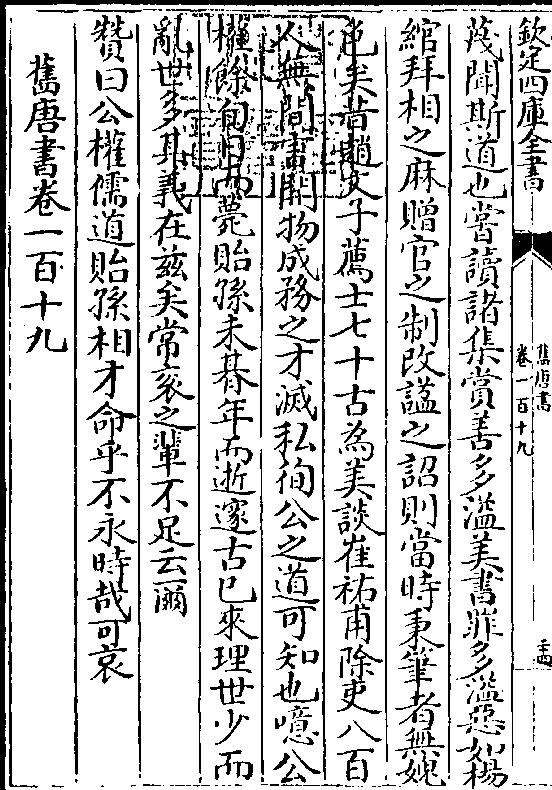 欽定四庫全書
舊唐書
卷一百十九
蔑聞斯道也嘗讀諸集賞善多溢美書罪多溢惡如楊
綰拜相之麻贈官之制改諡之詔則當時秉筆者無媿
色矣昔趙文子薦士七十古為美談崔祐甫除吏八百
人無間言開物成務之才滅私徇公之道可知也噫公
權餘旬日而薨貽孫未朞年而逝邃古已來理世少而
亂世多其義在茲矣常袞之輩不足云爾
贊曰公權儒道貽孫相才命乎不永時哉可哀
舊唐書卷一百十九